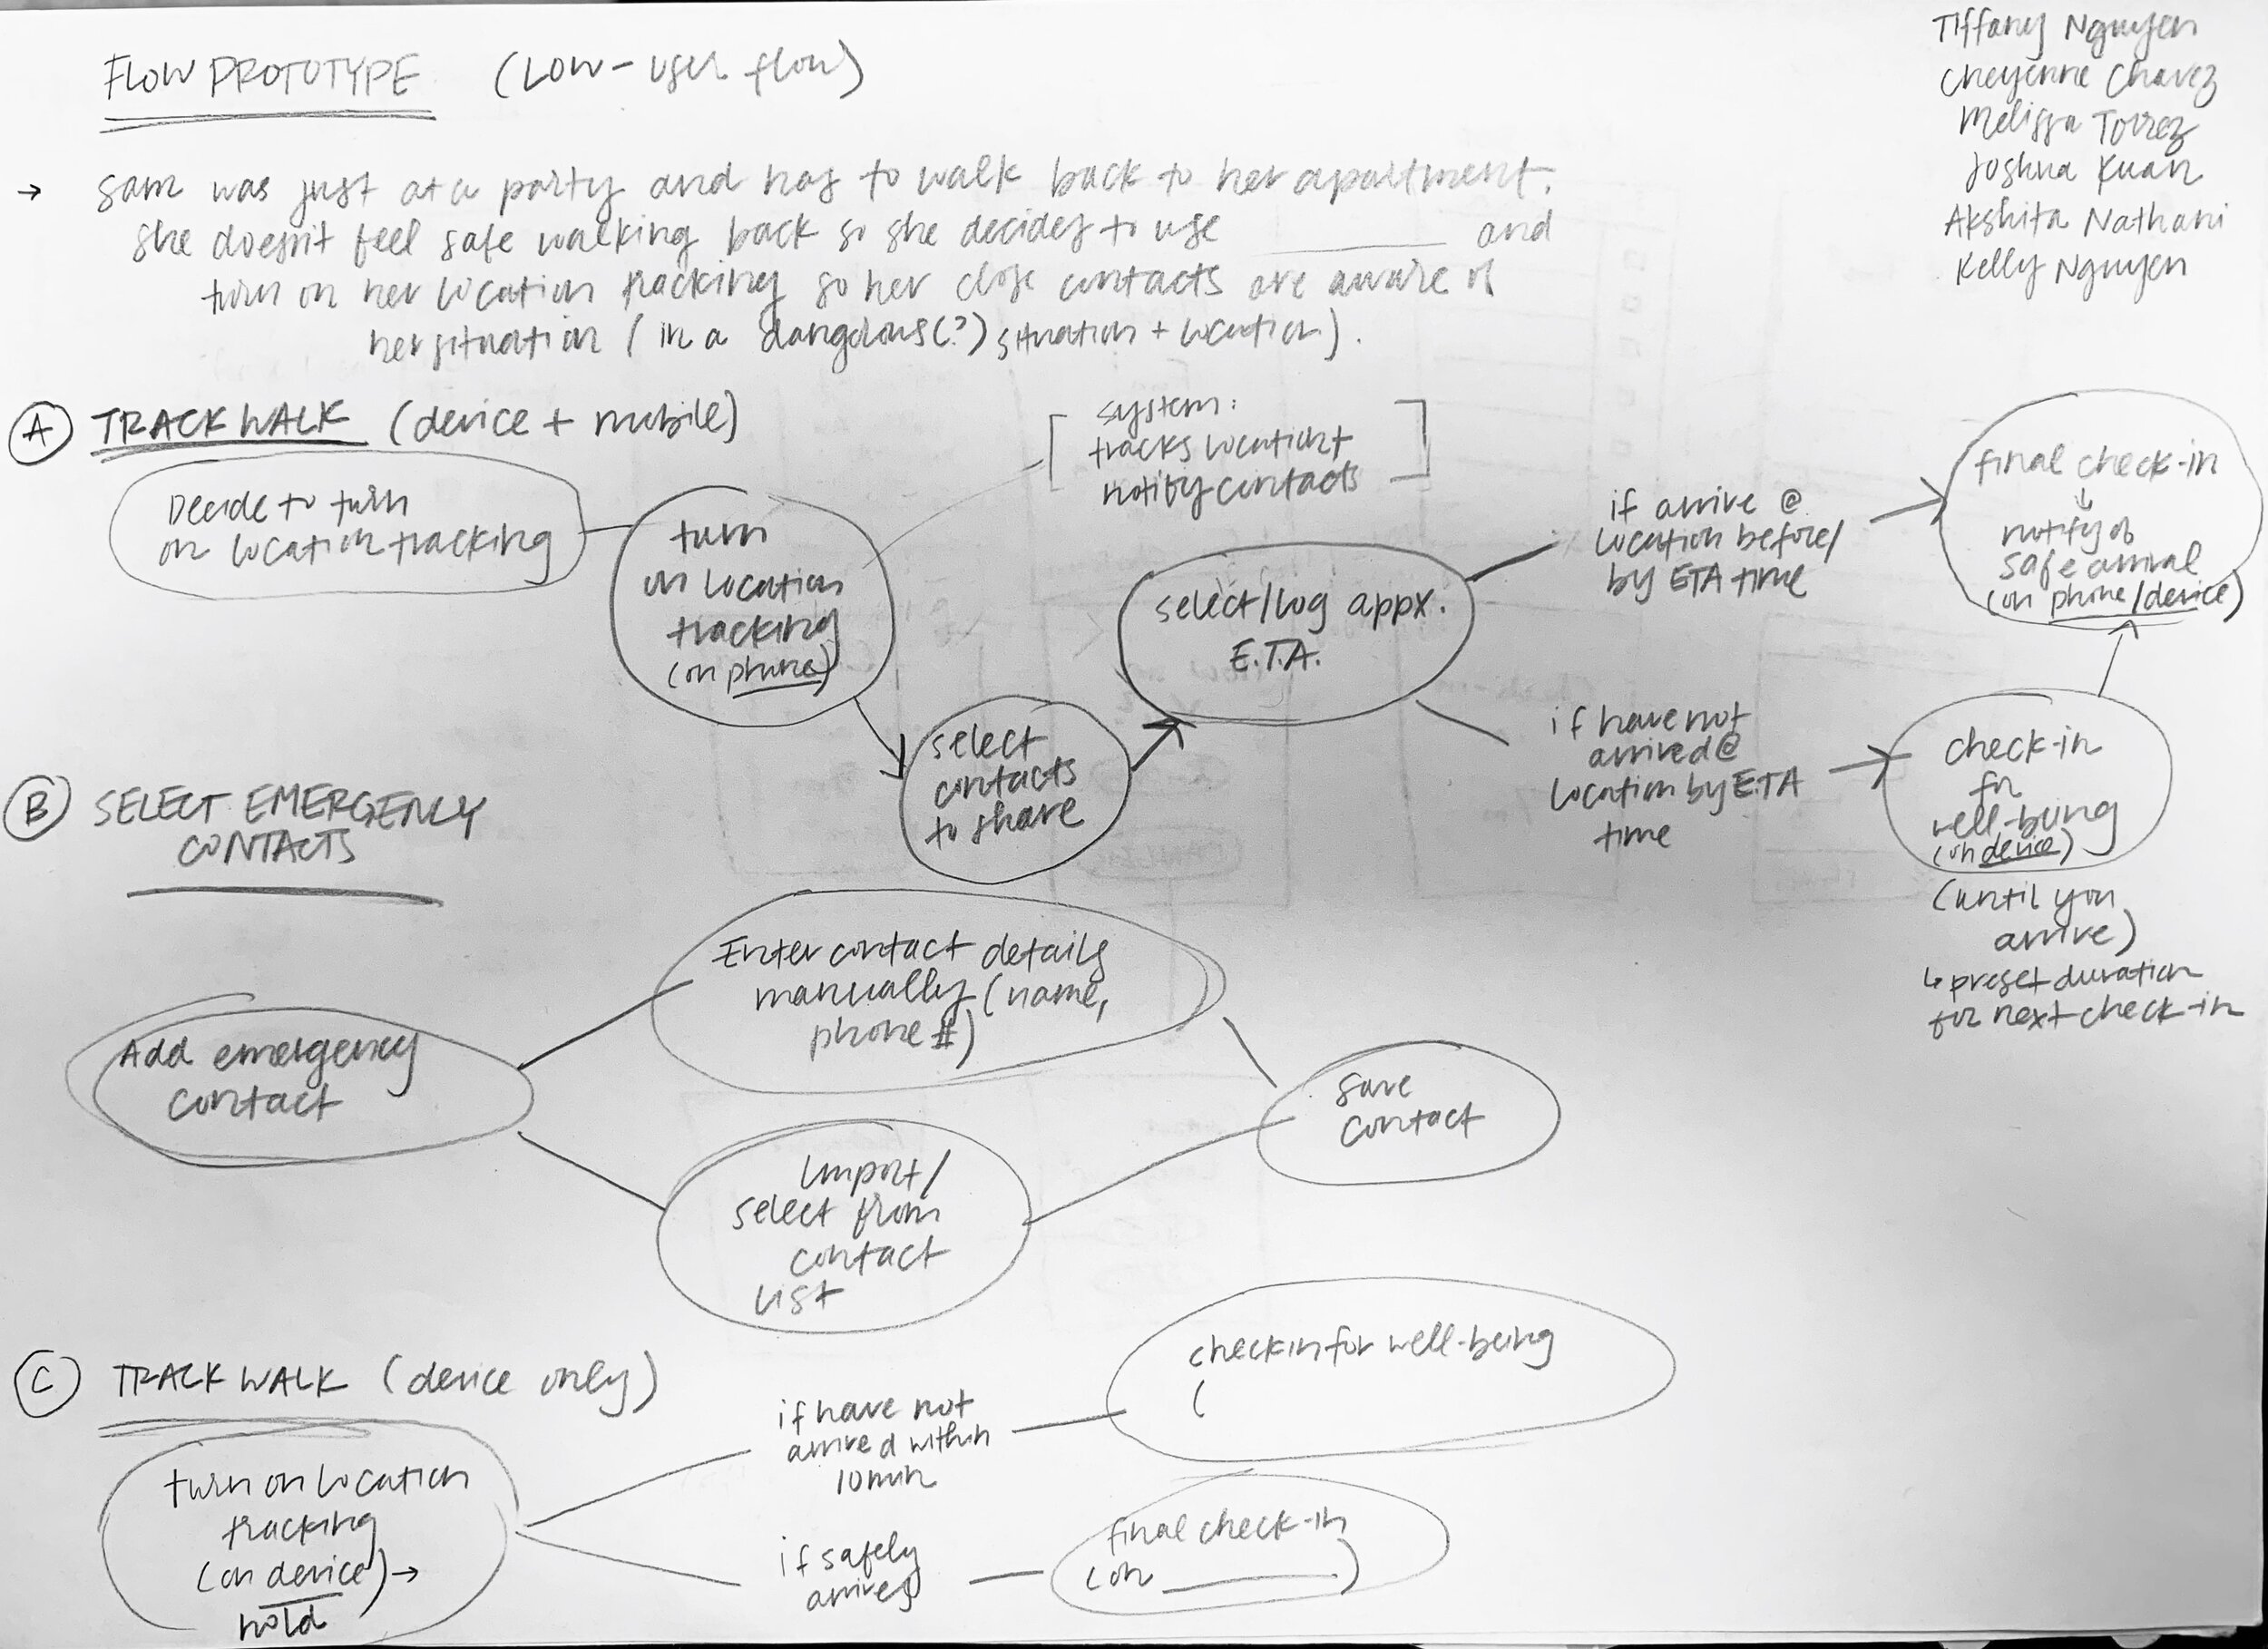 FLOW PROTOTYPE (LOW-user flow)
Tiffany Nguyen
Cheyenne Chavez
Melissa Torrez
Joshua Kuan
Akshita Nathani
Kelly Nguyen
→ Sam was just at a party and has to walk back to her apartment.
She doesn't feel safe walking back so she decides to use ________ and
turn on her location tracking so her close contacts are aware of
her situation (in a dangerous(?) situation + location).
A TRACK WALK (device + mobile)
Decide to turn
on location tracking
turn
on location
tracking
(on phone)
[system:
tracks location +
notify contacts]
select
contacts
to share
select/log appx.
E.T.A.
if arrive @
location before/
by ETA time
final check-in
↓
notify of
safe arrival
(on phone/device)
if have not
arrived @
location by ETA
time
check-in
for
well-being
(on device)
(until you
arrive)
↳ preset duration
for next check-in
B SELECT EMERGENCY
CONTACTS
Add emergency
contact
Enter contact details
manually (name,
phone #)
Import/
select from
contact
list
save
contact
C TRACK WALK (device only)
turn on location
tracking
(on device) →
hold
if have not
arrived within
10 min
check in for well-being
(
if safely
arrives
final check-in
(on ________)